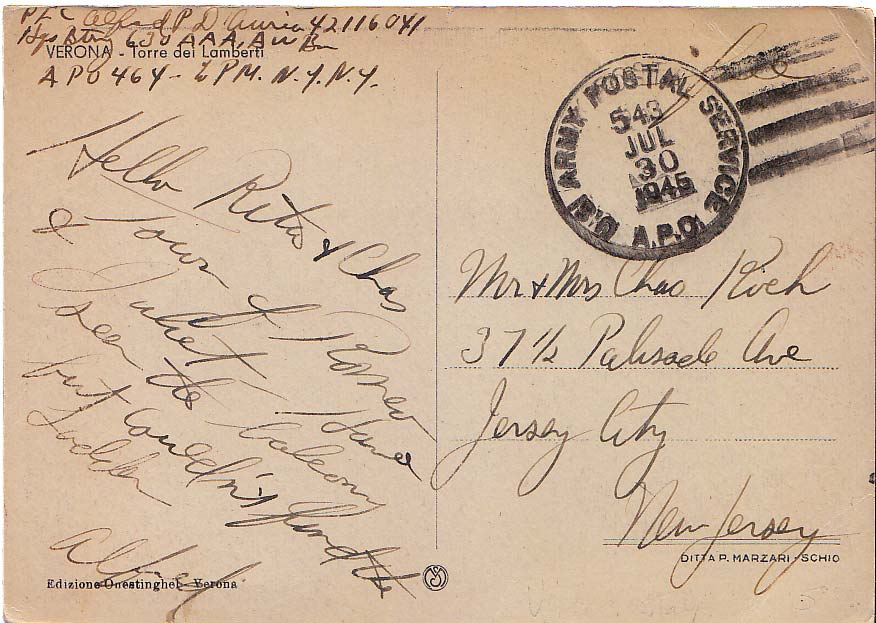 Pfc Alfred P D'Auria 42116041
Hqs Btry 630 AAA AW Bn
VERONA - Torre dei Lamberti
APO 464 - % PM. N.Y. N.Y.
Hello Rita & Chas
Town of Romeo
& Juliet. Have
seen the balcony
but couldn't find the
ladder
Alfred
Edizione Onestinghel - Verona
Free
U.S. ARMY POSTAL SERVICE
543
JUL
30
1945
A.P.O.
Mr & Mrs Chas Rich
37 1/2 Palisade Ave
Jersey City
New Jersey
DITTA P. MARZARI - SCHIO